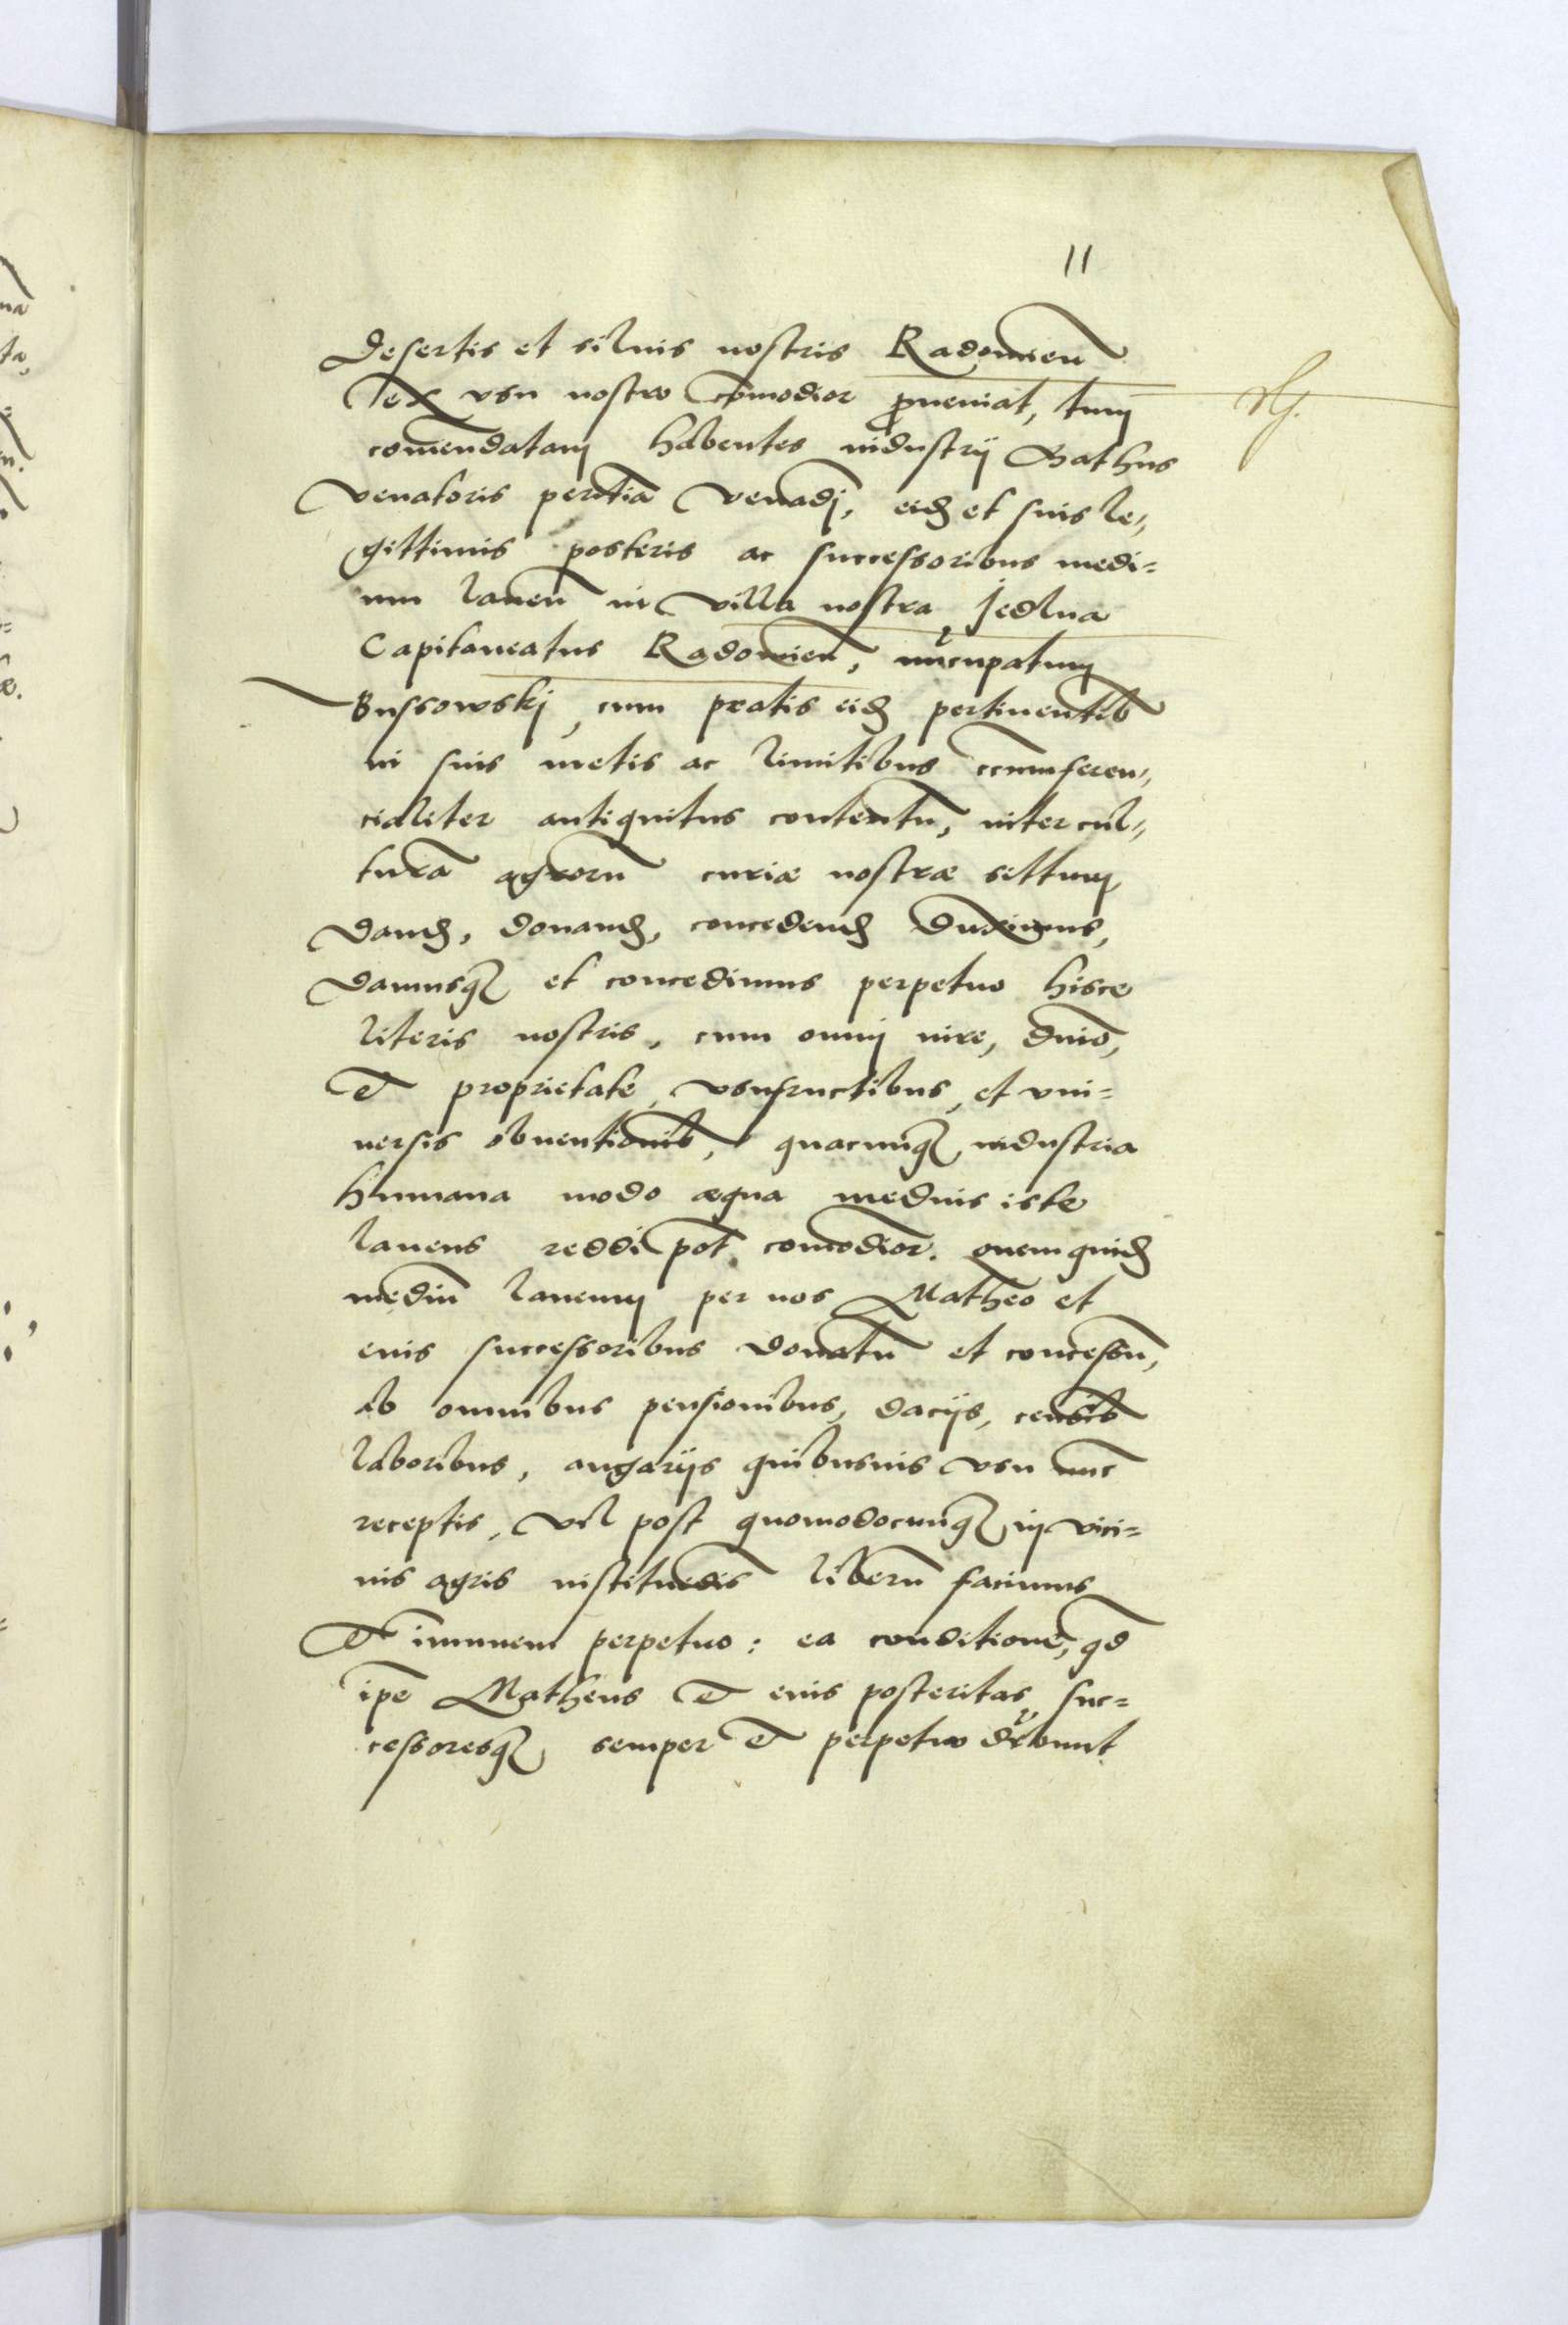 11
desertis et siluis nostris Radomien̄
ex vsu nostro com̄odior ꝓueniat, tum
com̄endatam habentes industrij Mathæus
venatoris peritiā venādj, eidꝫ et suis le„
gittimis posteris ac successoribus medi=
um laneū in villa nostra Jedlna
Capitaneatus Radomien̄, nūcupatum
Bussowskj, cum pratis eidꝫ pertinentib
in suis metis ac limitibus circumferen„
cialiter antiquitus contentū, inter cul„
turā agrorū curiæ nostræ sittum,
dandꝫ, donandꝫ, concedendꝫ duximus,
damusqꝫ et concedimus perpetuo hisce
literis nostris, cum omnj iure, dnīo,
et proprietate, vsufructibus, et vni=
uersis obuentionib, quacunqꝫ industria
humana modo æqua medius iste
laneus reddi pōt com̄odior. quemquidꝫ
mediū laneum per nos Matheo et
eius successoribus donatū et concessū,
ab omnibus pensionibus, dacijs, censib
laboribus, angarijs quibusuis vsu nūc
receptis, vel post quomodocunqꝫ in vici=
nis agris instituēdis liberū facimus
et im̄unem perpetuo: ea conditione, qd̄
ipē Matheus et eius posteritas, suc=
cessoresqꝫ semper et perpetuo debunt